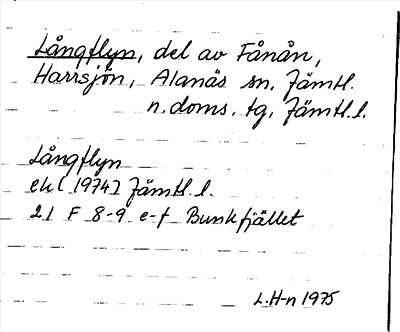 Långflyn, del av Fånån,
Harrsjön, Alanäs sn. Jämtl.
n. doms. tg, Jämtl. l.
Långflyn
ek [1974] Jämtl. l.
21 F 8-9 e-f Bunkfjället
L.H-n 1975